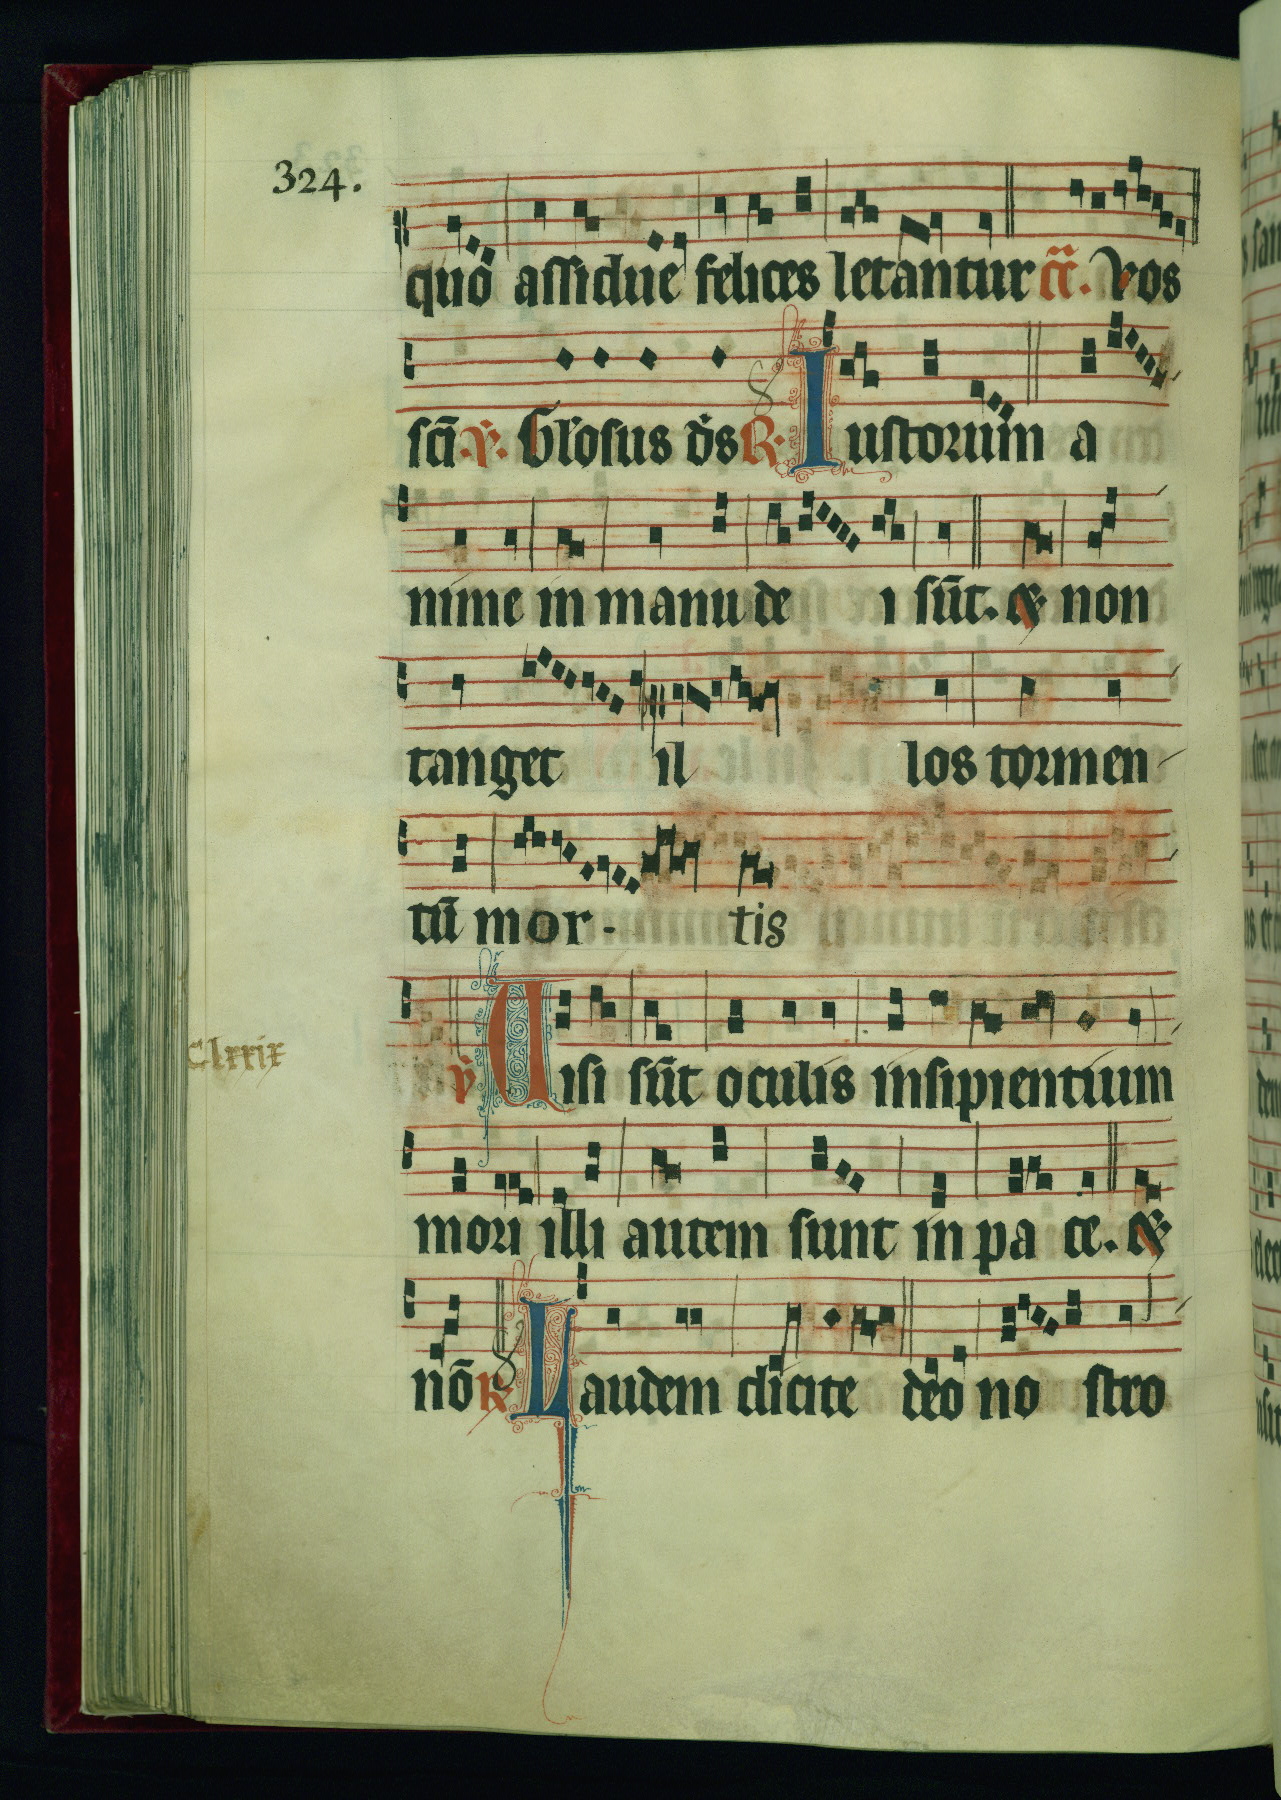 324.
quo assidue felices letantur cc̄. Vos
scī ꝟ. Glosus ds R. Iustorum a
nime in manu de i sūt. & non
tanget il los tormen
tū mor- tis
Clxxix
ꝟ Uisi sūt oculis insipientium
mori illi autem sunt in pa ce. &
nō R. Laudem dicite deo no stro